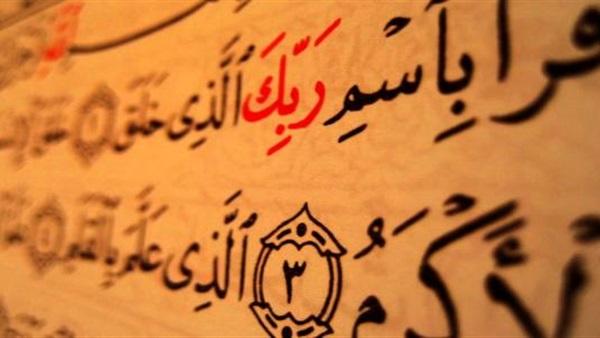 قرأ بِٱسْمِ رَبِّكَ ٱلَّذِى خَلَقَ ١ خَلَقَ
لْأَكْرَمُ ٣ ٱلَّذِى عَلَّمَ بِٱلْقَلَمِ ٤